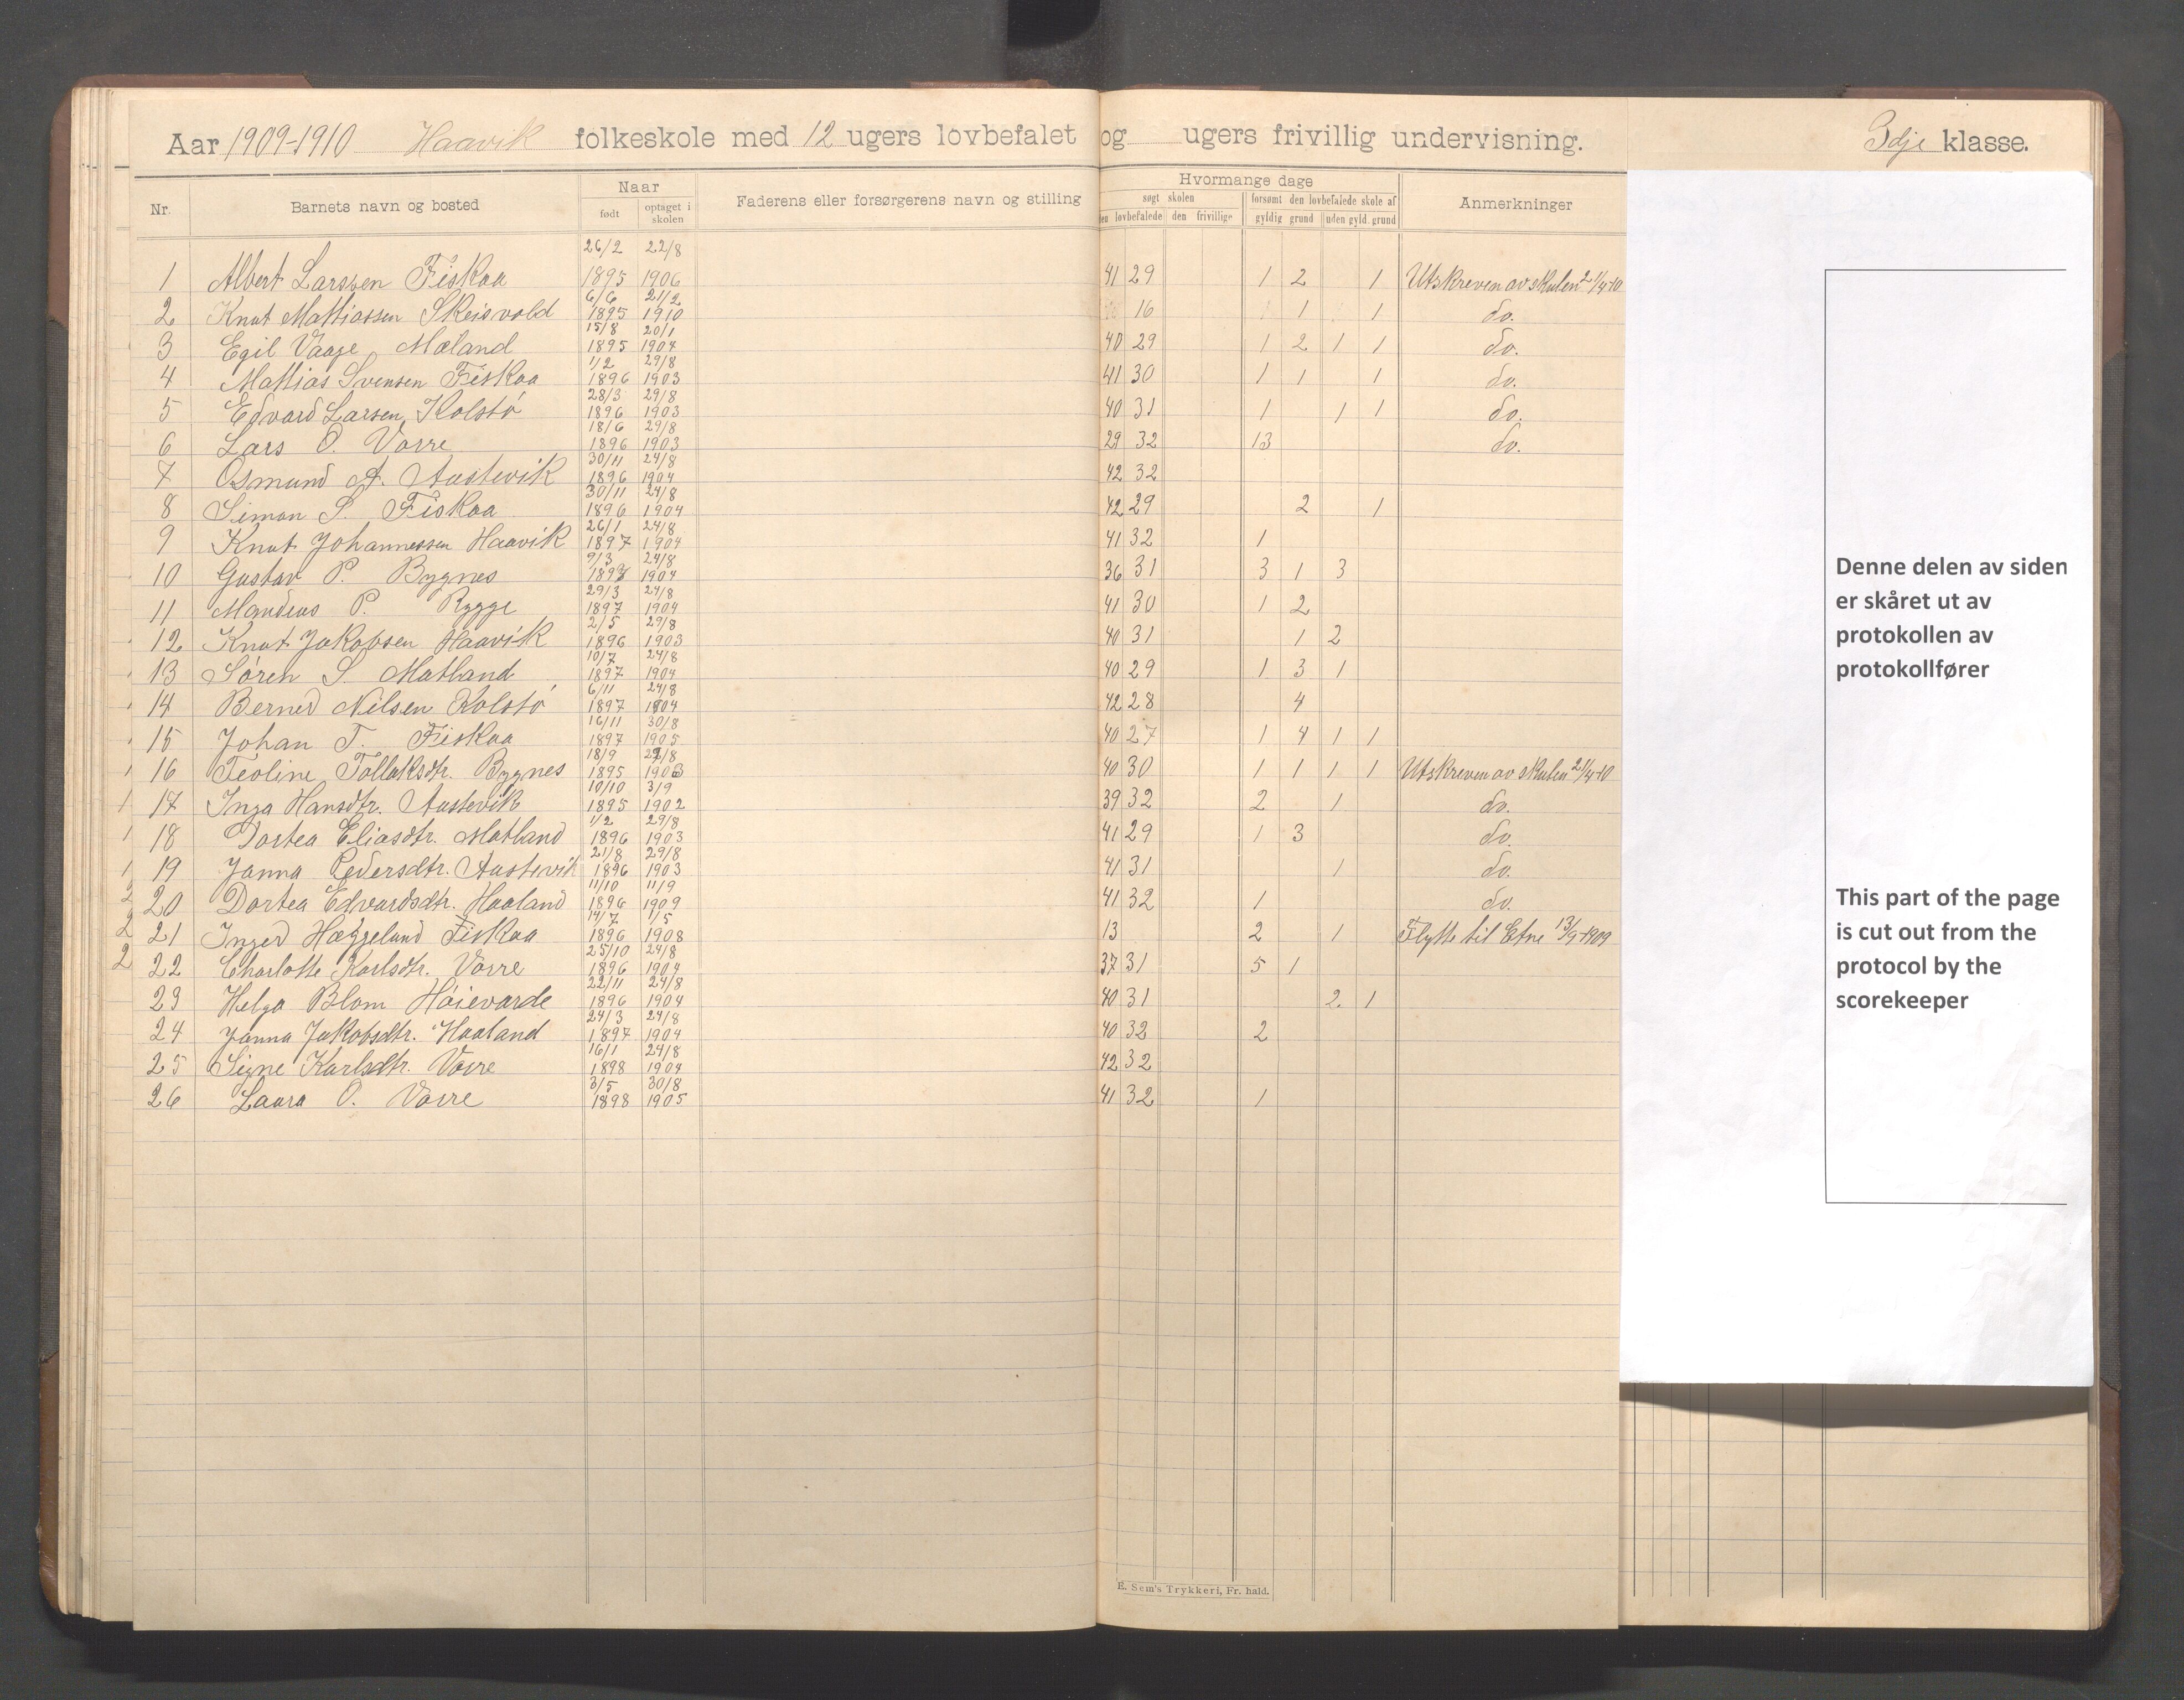 Aar 1909-1910 Haavik folkeskole med 12 ugers lovbefalet og ugers frivillig undervisning. 3dje klasse.
Nr. Barnets navn og bosted Naar født optaget i skolen Faderens eller forsørgerens navn og stilling Hvormange dage søgt skolen den lovbefalede den frivillige forsømt den lovbefalede skole af gyldig grund uden gyld. grund Anmerkninger
1 Albert Larssen Fiskaa 26/2 1895 22/8 1906 41 29 1 2 1 Utskreven av skulen 21/4-10
2 Knut Mattiassen Skeisvold 6/6 1895 21/2 1910 16 1 1 do.
3 Egil Vaage Mæland 15/8 1895 20/1 1904 40 29 1 2 1 1 do.
4 Mattias Svensen Fiskaa 1/2 1896 29/8 1903 41 30 1 1 1 do.
5 Edvard Larsen Kolstø 28/3 1896 29/8 1903 40 31 1 1 1 do.
6 Lars O. Vorre 18/6 1896 29/8 1903 29 32 13 do.
7 Osmund A. Austevik 30/11 1896 24/8 1904 42 32
8 Simon S. Fiskaa 30/11 1896 24/8 1904 42 29 2 1
9 Knut Johannessen Haavik 26/1 1897 24/8 1904 41 32 1
10 Gustav P. Bygnes 9/3 1897 24/8 1904 36 31 3 1 3
11 Mandius P. Rygge 29/3 1897 24/8 1904 41 30 1 2
12 Knut Jakobsen Haavik 2/5 1896 29/8 1903 40 31 1 2
13 Søren S. Matland 10/7 1897 24/8 1904 40 29 1 3 1
14 Berned Nilsen Kolstø 6/11 1897 24/8 1904 42 28 4
15 Johan T. Fiskaa 16/11 1897 30/8 1905 40 27 1 4 1 1
1 16 Teoline Tollaksdtr. Bygnes 18/9 1895 29/8 1903 40 30 1 1 1 1 Utskreven av skulen 21/4-10
1 17 Inga Hansdtr. Austevik 10/10 1895 3/9 1902 39 32 2 1 do.
1 18 Dortea Eliasdtr. Matland 1/2 1896 29/8 1903 41 29 1 3 do.
1 19 Janna Pedersdtr. Austevik 21/8 1896 29/8 1903 41 31 1 do.
2 20 Dortea Edvardsdtr. Haaland 11/10 1896 11/9 1909 41 32 1 do.
2 21 Inged Hæggelund Fiskaa 14/7 1896 1/5 1908 13 2 1 Flytte til Etne 13/9-1909
2 22 Charlotte Karlsdtr. Vorre 25/10 1896 24/8 1904 37 31 5 1
23 Helga Blom Høievarde 22/11 1896 24/8 1904 40 31 2. 1
24 Janna Jakobsdtr. Haaland 24/3 1897 24/8 1904 40 32 2
25 Signe Karlsdtr. Vorre 16/1 1898 24/8 1904 42 32
26 Laura O. Vorre 3/5 1898 30/8 1905 41 32 1
E. Sem's Trykkeri, Fr. hald.
Denne delen av siden
er skåret ut av
protokollen av
protokollfører
This part of the page
is cut out from the
protocol by the
scorekeeper